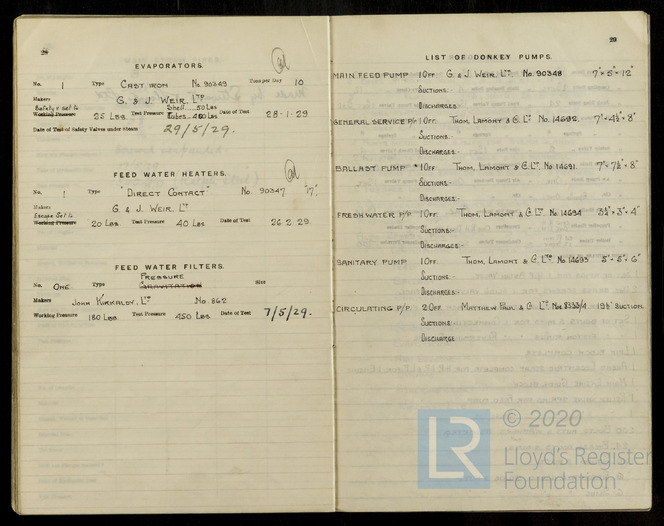 28
EVAPORATORS.
No. 1 Type CAST IRON No. 90349 Tons per Day 10
Makers G. & J. WEIR, LTD
Safety v. set to
Working Pressure 25 LBS Test Pressure Shell 50 LBS Tubes 450 LBS Date of Test 28-1-29
Date of Test of Safety Valves under steam 29/5/29.
FEED WATER HEATERS.
No. 1 Type "DIRECT CONTACT" No. 90347 "17"
Makers G. & J. WEIR, LTD
Escape Set to
Working Pressure 20 LBS. Test Pressure 40 LBS. Date of Test 26-2-29.
FEED WATER FILTERS.
No. ONE Type PRESSURE GRAVITATION Size
Makers JOHN KIRKALDY, LTD No. 862
Working Pressure 180 LBS. Test Pressure 450 LBS Date of Test 7/5/29.
29
LIST OF DONKEY PUMPS.
MAIN FEED PUMP 1 OFF G. & J. WEIR, LTD. No. 90348 7" × 5" × 12"
SUCTIONS:-
DISCHARGES:-
GENERAL SERVICE P/P 1 OFF THOM, LAMONT & Co. LTD. No. 14692. 7" × 4½" × 8"
SUCTIONS:-
DISCHARGES:-
BALLAST PUMP 1 OFF THOM, LAMONT & Co. LTD No. 14691. 7" × 7½" × 8"
SUCTIONS:-
DISCHARGES:-
FRESH WATER P/P 1 OFF THOM, LAMONT & Co. LTD No. 14694 3½" × 3" × 4"
SUCTIONS:-
DISCHARGES:-
SANITARY PUMP 1 OFF THOM, LAMONT & Co. LTD No. 14693 5" × 5" × 6"
SUCTIONS:-
DISCHARGES:-
CIRCULATING P/P 2 OFF MATTHEW PAUL & Co. LTD Nos 8333/4 13½" SUCTION
SUCTIONS:-
DISCHARGE
© 2020
LR
Lloyd's Register
Foundation